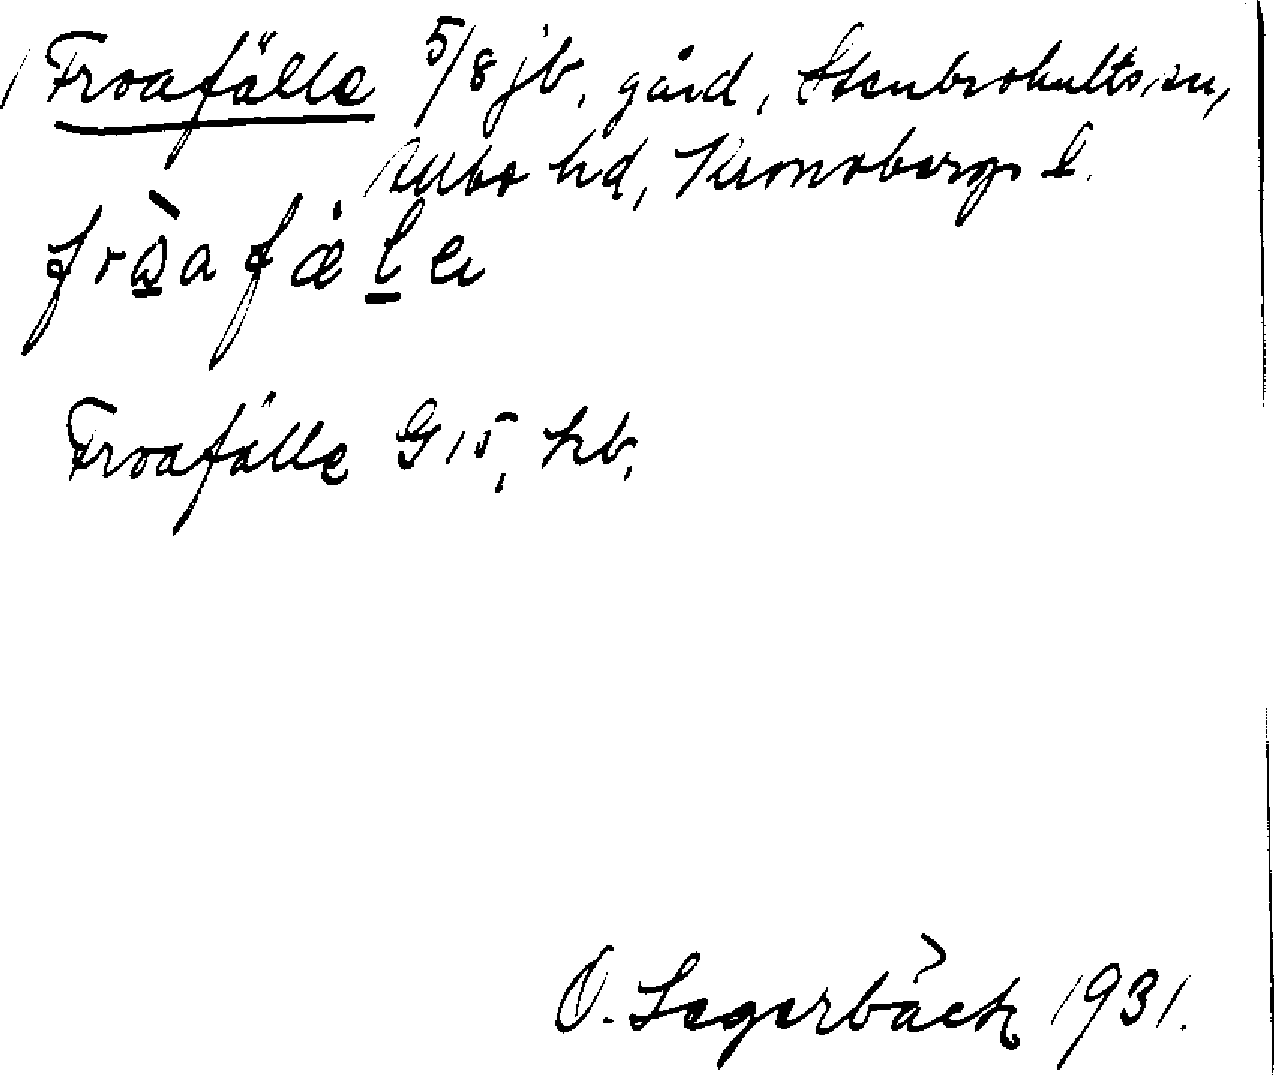 Froafälle 5/8 jb, gård, Stenbrohults sn,
Allbo hd, Kronobergs l.
Froafälle G 15, hb.
O. Lagerbäck 1931.